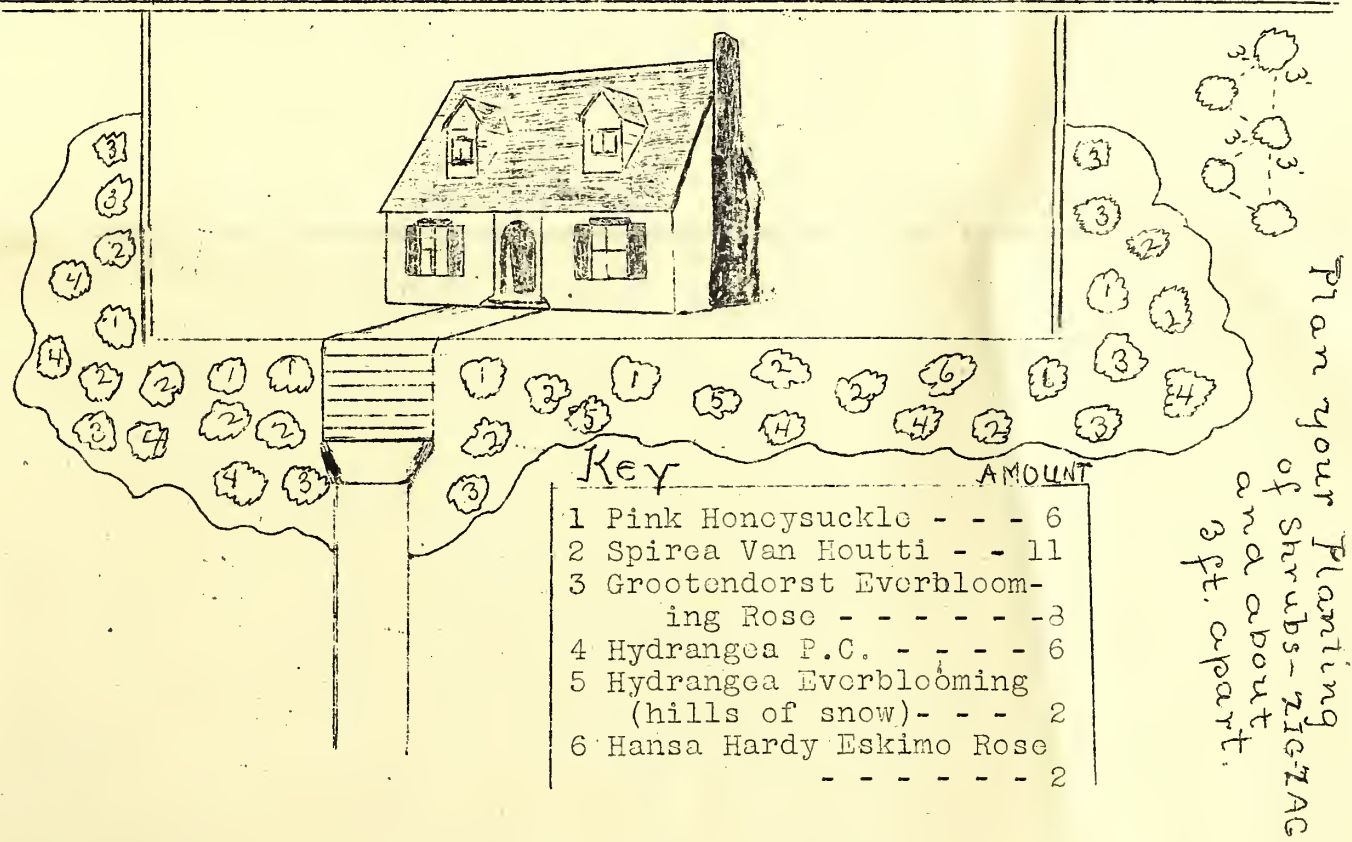 3' 3'
3' 3'
3
3
2
4
1
4
2 2 1 1
3 4 2 2
4 3
1 2 1 5 2 2 6 1
5 2 4 4 2 3
3
3
3
2
1
2
3
4
Key AMOUNT
1 Pink Honeysuckle - - - 6
2 Spirea Van Houtti - - 11
3 Grootendorst Everbloom-
ing Rose - - - - - - -8
4 Hydrangea P.C. - - - - 6
5 Hydrangea Everblooming
(hills of snow)- - - 2
6 Hansa Hardy Eskimo Rose
- - - - - - 2
Plan your Planting
of Shrubs- ZIG-ZAG
and about
3 ft. apart.